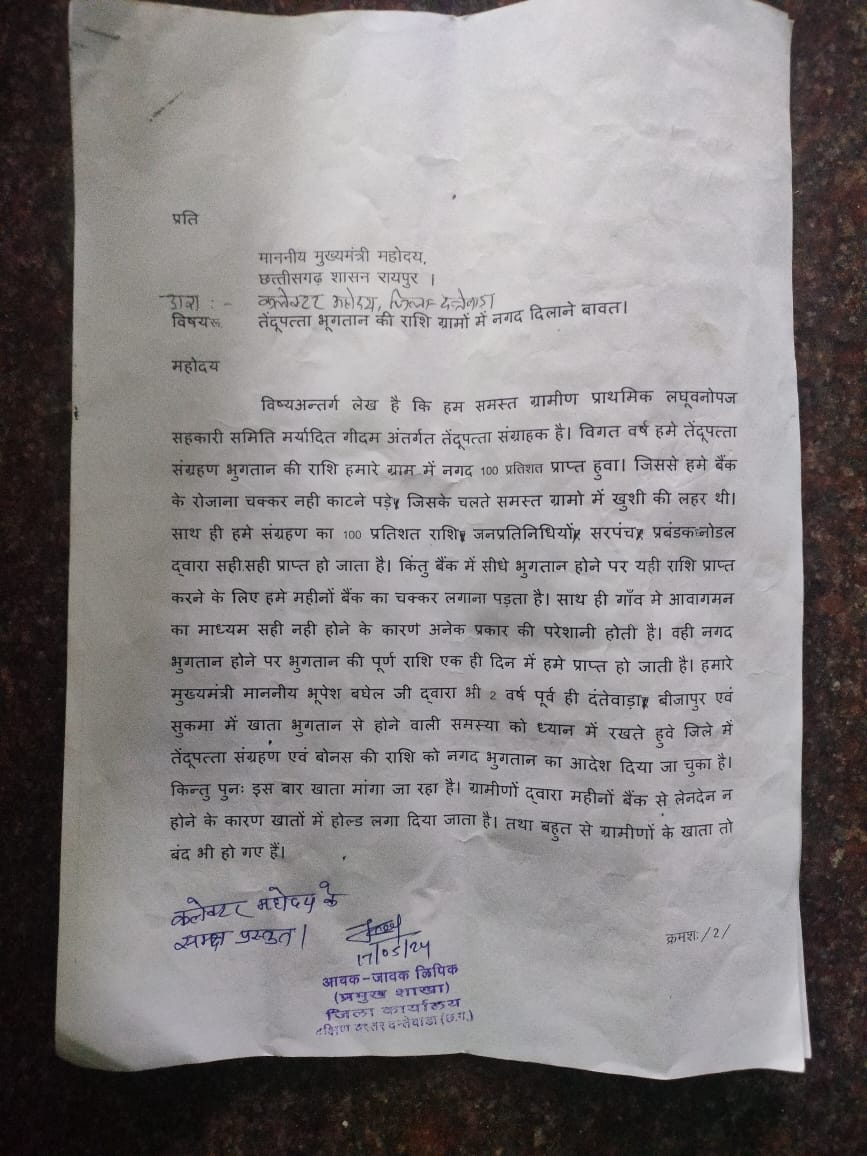 प्रति
माननीय मुख्यमंत्री महोदय,
छत्तीसगढ़ शासन रायपुर ।
द्वारा :- कलेक्टर महोदय, जिला दन्तेवाड़ा
विषयः तेंदूपत्ता भूगतान की राशि ग्रामों में नगद दिलाने बावत।
महोदय
विष्यअन्तर्ग लेख है कि हम समस्त ग्रामीण प्राथमिक लघूवनोपज
सहकारी समिति मर्यादित गीदम अंतर्गत तेंदूपत्ता संग्राहक है। विगत वर्ष हमे तेंदूपत्ता
संग्रहण भुगतान की राशि हमारे ग्राम में नगद 100 प्रतिशत प्राप्त हुवा। जिससे हमे बैंक
के रोजाना चक्कर नही काटने पड़े, जिसके चलते समस्त ग्रामो में खुशी की लहर थी।
साथ ही हमे संग्रहण का 100 प्रतिशत राशि, जनप्रतिनिधियों, सरपंच, प्रबंडक नोडल
द्वारा सही सही प्राप्त हो जाता है। किंतु बैंक में सीधे भुगतान होने पर यही राशि प्राप्त
करने के लिए हमे महीनों बैंक का चक्कर लगाना पड़ता है। साथ ही गाँव मे आवागमन
का माध्यम सही नही होने के कारण अनेक प्रकार की परेशानी होती है। वही नगद
भुगतान होने पर भुगतान की पूर्ण राशि एक ही दिन में हमे प्राप्त हो जाती है। हमारे
मुख्यमंत्री माननीय भूपेश बघेल जी द्वारा भी 2 वर्ष पूर्व ही दंतेवाड़ा, बीजापुर एवं
सुकमा में खाता भुगतान से होने वाली समस्या को ध्यान में रखते हुवे जिले में
तेंदूपत्ता संग्रहण एवं बोनस की राशि को नगद भुगतान का आदेश दिया जा चुका है।
किन्तु पुनः इस बार खाता मांगा जा रहा है। ग्रामीणों द्वारा महीनों बैंक से लेनदेन न
होने के कारण खातों में होल्ड लगा दिया जाता है। तथा बहुत से ग्रामीणों के खाता तो
बंद भी हो गए हैं।
कलेक्टर महोदय के
समक्ष प्रस्तुत।
17/05/24
क्रमशः/2/
आवक-जावक लिपिक
(प्रमुख शाखा)
जिला कार्यालय
दक्षिण बस्तर दन्तेवाडा (छ.ग.)